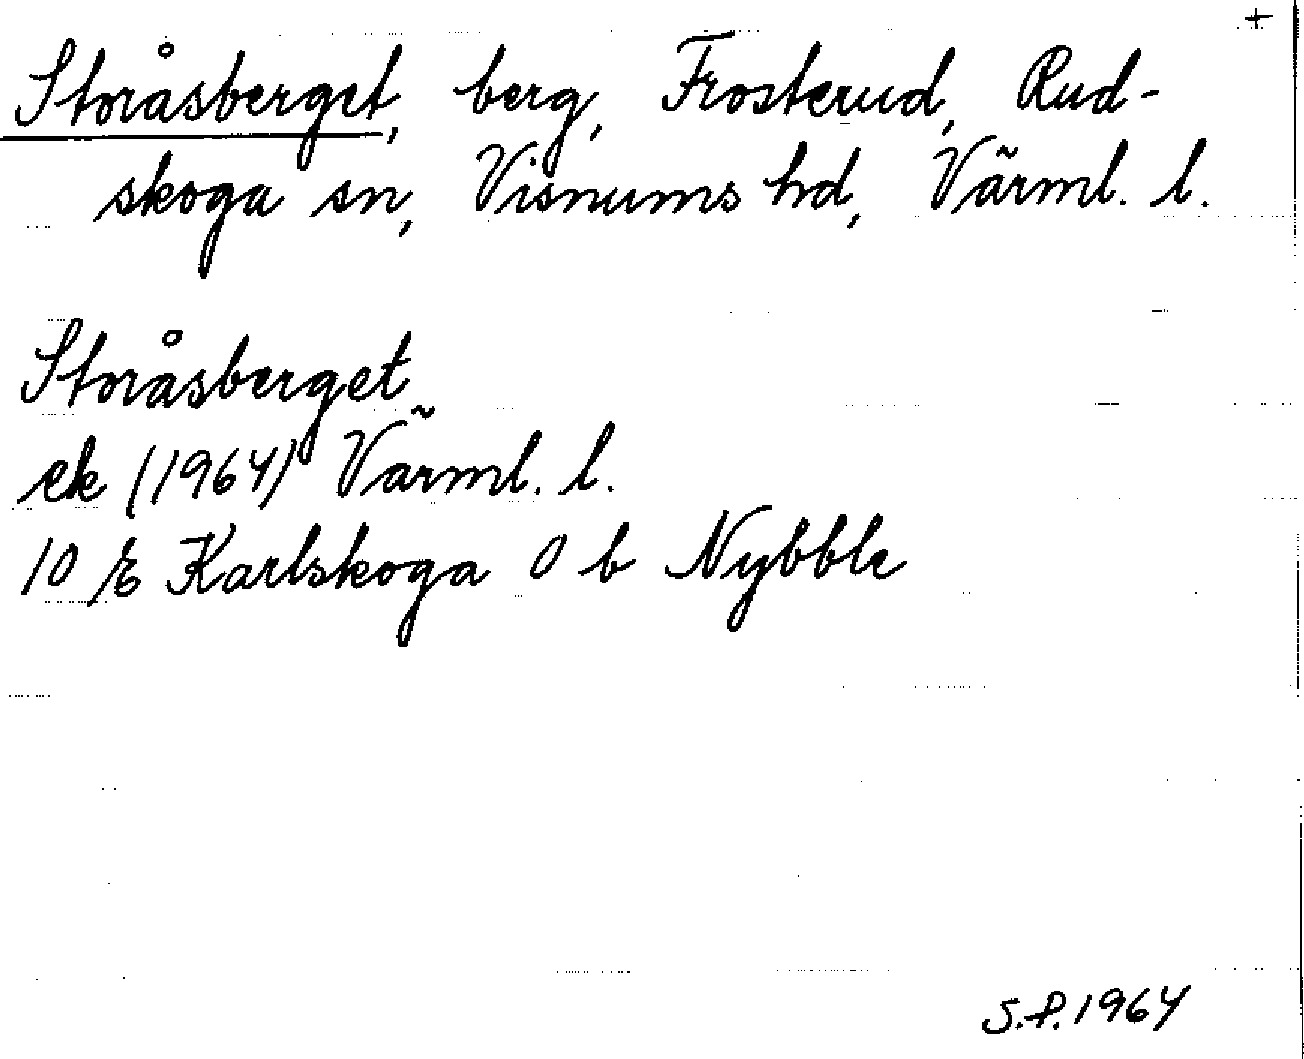 +
Storåsberget, berg, Frosterud, Rud-
skoga sn, Visnums hd, Värml. l.
Storåsberget
ek (1964) Värml. l.
10 E Karlskoga 0 b Nybble
S.P. 1964